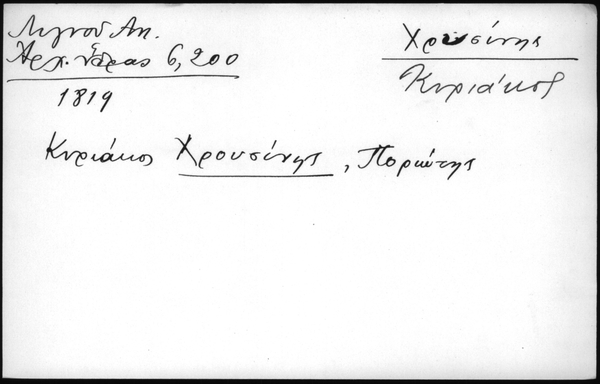 Λιγνού Αη.
Αρχ. Ύδρας 6, 200
1819
Χρυσίνης
Κυριάκος
Κυριάκος Χρουσίνης, Ποριώτης